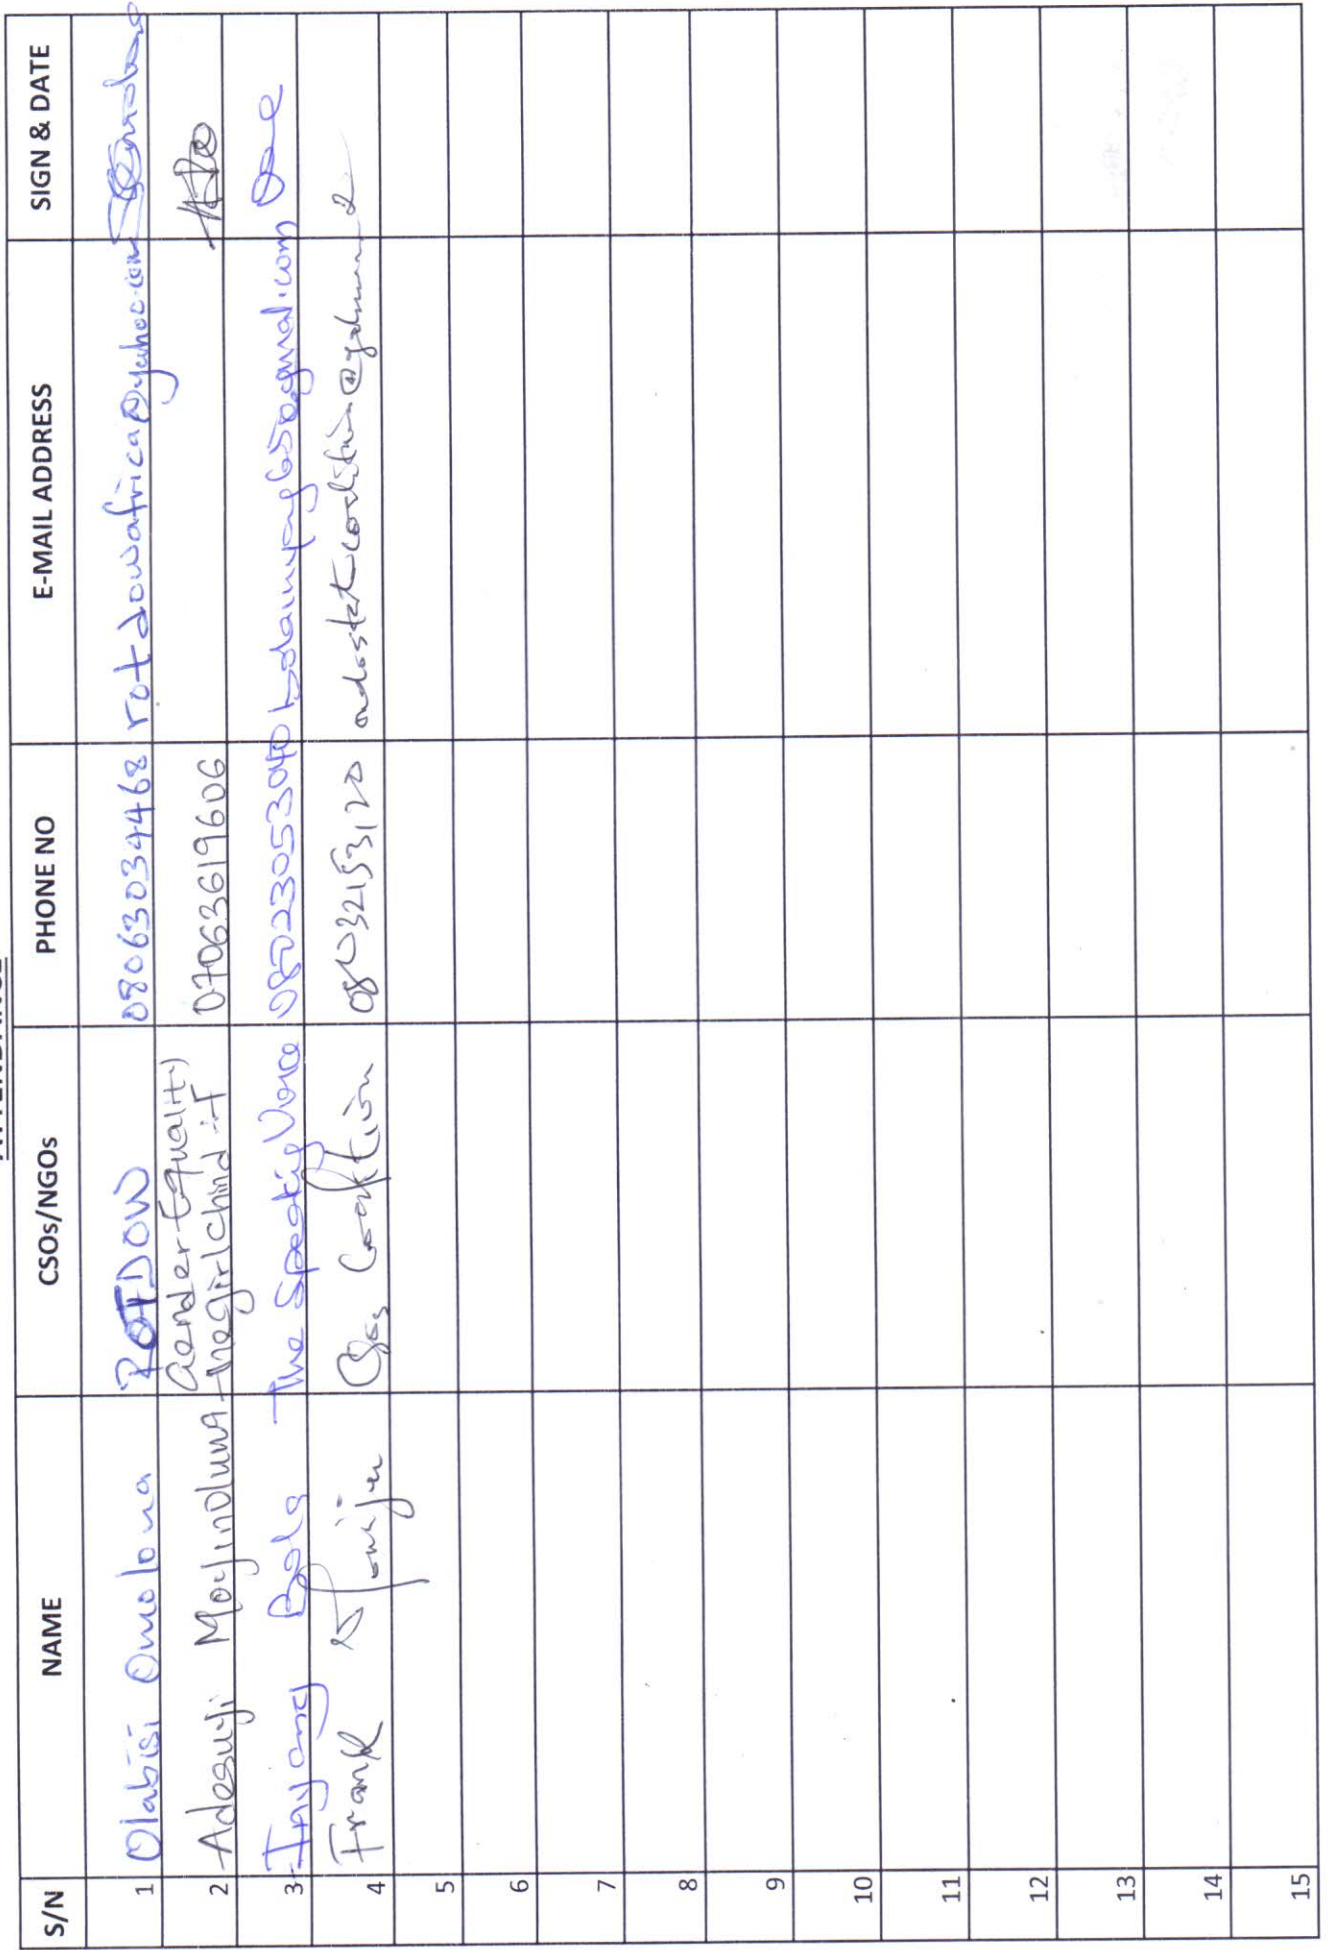 S/N NAME CSOs/NGOs PHONE NO E-MAIL ADDRESS SIGN & DATE
1 Olabisi Omolona ROTDOW 08063034468 rotdowafrica@yahoo.com
2 Adesuyi Moyinoluwa Gender Equality
thegirlchild 07063619606
3 Inyang Bola The Speaking Voice 08023053040
4 Frank Coalition 08032153120
5
6
7
8
9
10
11
12
13
14
15